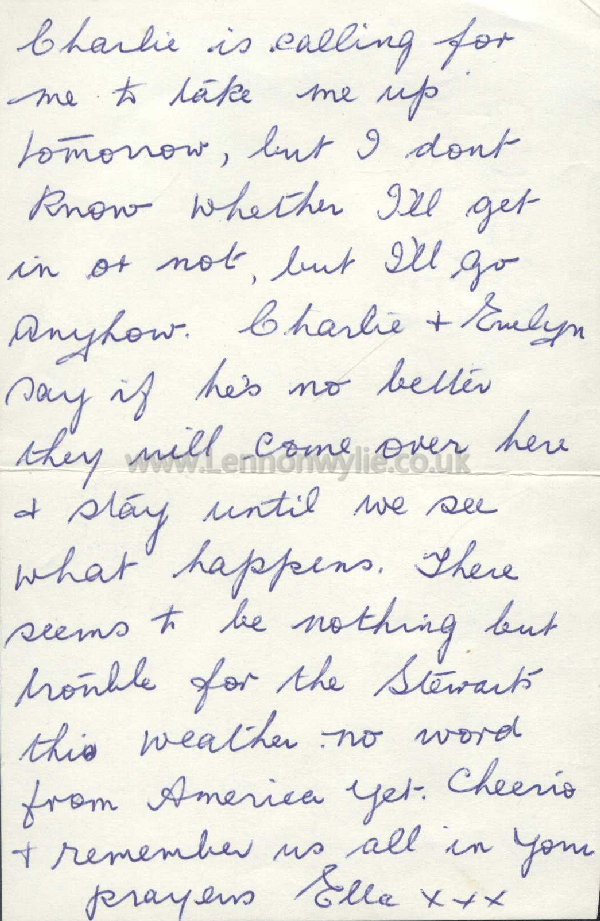 Charlie is calling for
me to take me up
tomorrow, but I dont
know whether I'll get
in or not, but I'll go
anyhow. Charlie + Evelyn
say if he's no better
they will come over here
www.Lennonwylie.co.uk
+ stay until we see
what happens. There
seems to be nothing but
trouble for the Stewarts
this weather no word
from America yet. Cheerio
+ remember us all in your
prayers Ella xxx